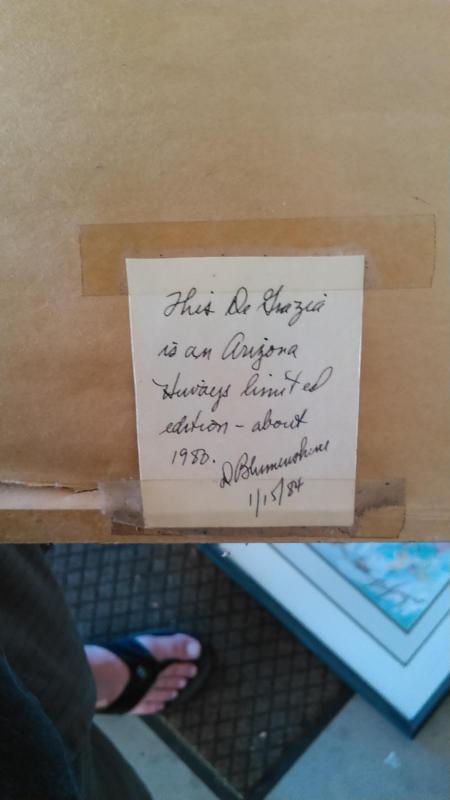 This De Grazia
is an Arizona
Hiways limited
edition - about
1980.
D Blumenshine
1/15/84